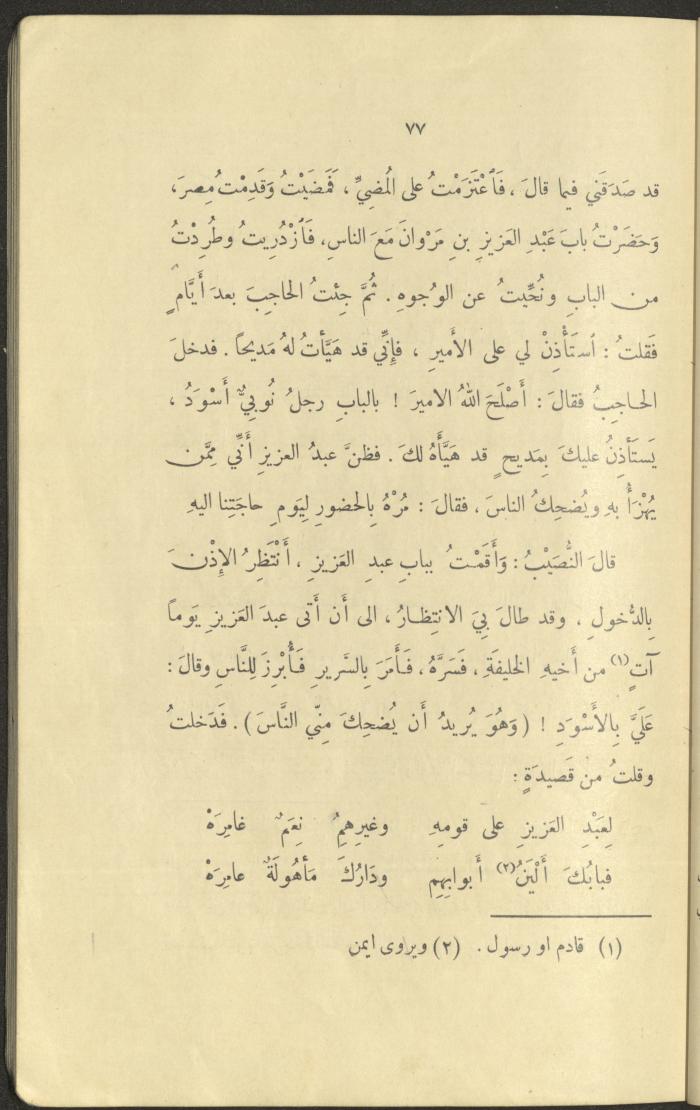 ٧٧
قد صَدَقَني فيما قالَ ، فَٱعْتَزَمْتُ على المُضِيِّ ، فَمَضَيْتُ وَقَدِمْتُ مِصرَ،
وَحَضَرْتُ بابَ عَبْدِ العَزيزِ بنِ مَرْوانَ مَعَ الناسِ، فَٱزْدُرِيتُ وطُرِدْتُ
من البابِ ونُحِّيتُ عن الوُجوهِ . ثُمَّ جِئتُ الحاجِبَ بعدَ أَيَّامٍ
فَقلتُ : ٱستَأْذِنْ لي على الأَميرِ ، فإِنِّي قد هَيَّأتُ لهُ مَديحاً . فدخلَ
الحاجِبُ فقالَ : أَصْلَحَ اللهُ الاميرَ ! بالبابِ رجلُ نُوبِيٌّ أَسْوَدُ ،
يَستَأْذِنُ عليكَ بِمَديحٍ قد هَيَّأَهُ لكَ . فظنَّ عبدُ العزيزِ أَنِّي مِمَّن
يُهْزَأُ بهِ ويُضحِكُ الناسَ ، فقالَ : مُرْهُ بِالحضورِ لِيَومِ حاجَتِنا اليهِ
قالَ النُّصَيْبُ : وَأَقَمْتُ ببابِ عبدِ العَزيزِ ، أَنْتَظِرُ الإِذْنَ
بِالدُّخولِ ، وقد طالَ بِيَ الانتِظارُ ، الى أَن أَتى عبدَ العَزيزِ يَوماً
آتٍ (١) من أَخيهِ الخليفَةِ ، فَسَرَّهُ ، فَأَمَرَ بِالسَّريرِ فَأُبْرِزَ لِلنَّاسِ وقالَ :
عَلَيَّ بِالأَسْوَدِ ! ( وَهُوَ يُريدُ أَن يُضحِكَ مِنّي النَّاسَ ) . فَدَخلتُ
وقلتُ من قَصيدَةٍ :
لِعَبْدِ العَزيزِ على قومِهِ وغيرِهِمُ نِعَمٌ غامِرَهْ
فبابُكَ أَلْيَنُ (٢) أَبوابِهِم ودَارُكَ مَأهُولَةٌ عامِرَهْ
(١) قادم او رسول . (٢) ويروى ايمن